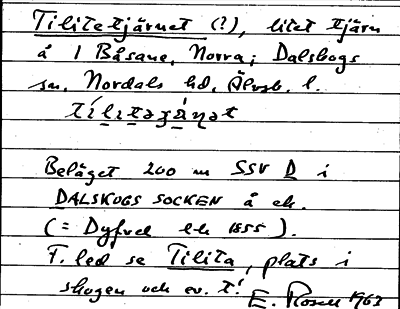 Tilitetjärnet (?), litet tjärn
å 1 Båsane, Norra; Dalskogs
sn. Nordals hd. Älvsb. l.
Beläget 200 m SSV D i
DALSKOGS SOCKEN å ek.
(= Dyfvel 1855).
F. led se Tilita, plats i
skogen och ev. t!
E. Rosell 1963